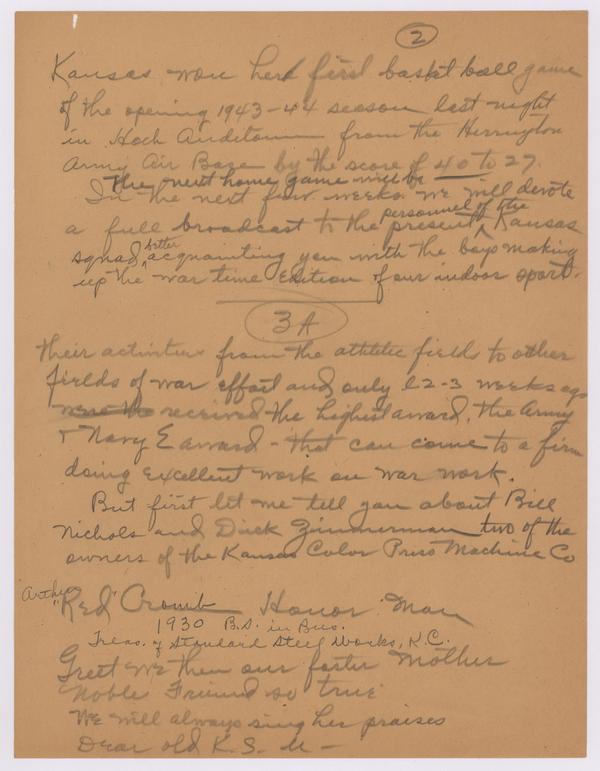 2
Kansas won her first basket ball game
of the opening 1943-44 season last night
in Hoch Auditorium from the Herrington
Army Air Base by the score of 40 to 27.
The next home game will be
In the next few weeks we will devote
a full broadcast to the present personnel of the Kansas
squad, better acquainting you with the boys making
up the war time Edition of our indoor sport.
3A
their activities from the athletic fields to other
fields of war effort and only 2-3 weeks ago
were the received the highest award, the Army
+ Navy E award - that can come to a firm
doing excellent work on war work.
But first let me tell you about Bill
Nichols and Dick Zimmerman two of the
owners of the Kansas Color Press Machine Co
Arthur
"Red" Cromb Honor Man
1930 B.S. in Bus.
Treas. of Standard Steel Works, K.C.
Greet we then our foster Mother
Noble Friend so true
We will always sing her praises
Dear old K. S. U -